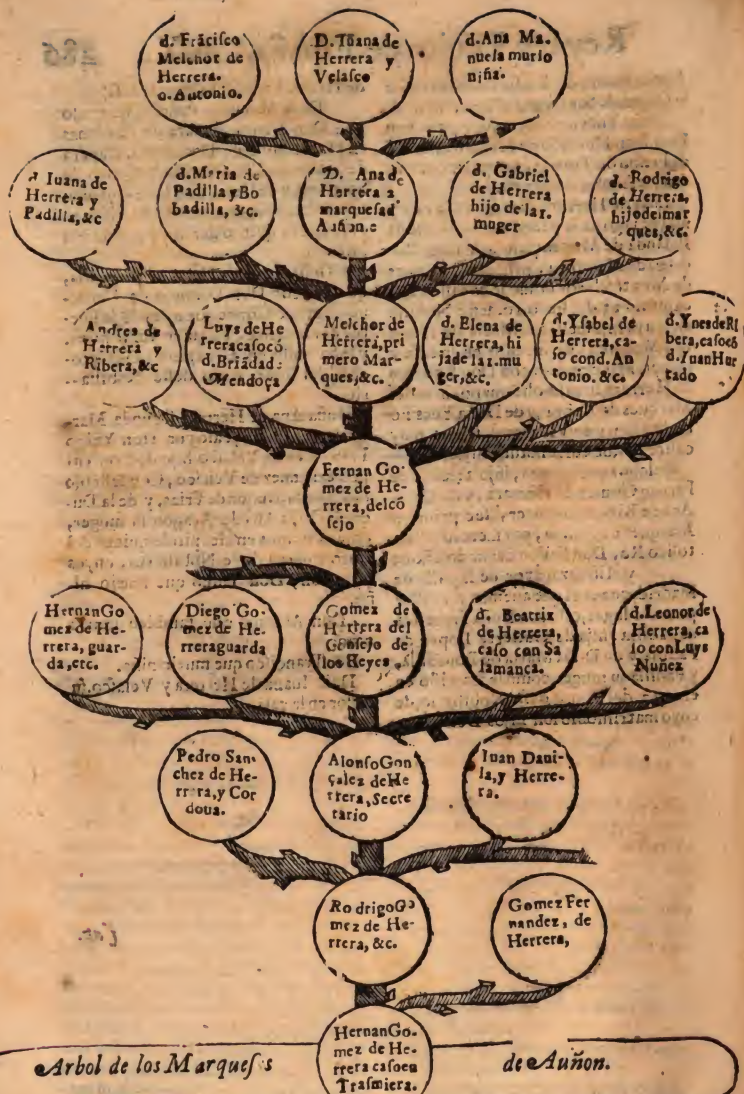 d. Frãcisco
Melchor de
Herrera.
o. Antonio.
D. Iũana de
Herrera y
Velasco
d. Ana Ma-
nuela murio
niña.
d Iuana de
Herrera y
Padilla, &c
d. Maria de
Padilla y Bo
badilla, &c.
D. Ana de
Herrera 2
marquesa d
Auñon.e
d. Gabriel
de Herrera
hijo de la 1.
muger
d. Rodrigo
de Herrera,
hijo del mar
ques, &c.
Andres de
Herrera y
Ribera, &c
Luys de He
rrera casocõ
d. Briãda d
Mendoça
Melchor de
Herrera, pri
mero Mar-
ques, &c.
d. Elena de
Herrera, hi
ja de la 1. mu
ger, &c.
d. Ysabel de
Herrera, ca-
so con d. An
tonio. &c.
d. Ynes de Ri
bera, casocõ
d. Iuan Hur
tado
Fernan Go-
mez de He-
rrera, del cõ
sejo
Hernan Go
mez de He-
rrera, guar-
da, etc.
Diego Go-
mez de He-
rrera guarda
Gomez de
Herrera del
Consejo de
los Reyes.
d. Beatriz
de Herrera,
caso con Sa
lamanca.
d. Leonor de
Herrera, ca
so con Luys
Nuñez
Pedro San-
chez de He-
rrera, y Cor
doua.
Alonso Gon
çalez de He
rrera, Secre
tario
Iuan Daui-
la, y Herre-
ra.
Rodrigo Go
mez de He-
rrera, &c.
Gomez Fer
nandez, de
Herrera,
Hernan Go-
mez de He-
rrera caso en
Trasmiera.
Arbol de los Marques s de Auñon.